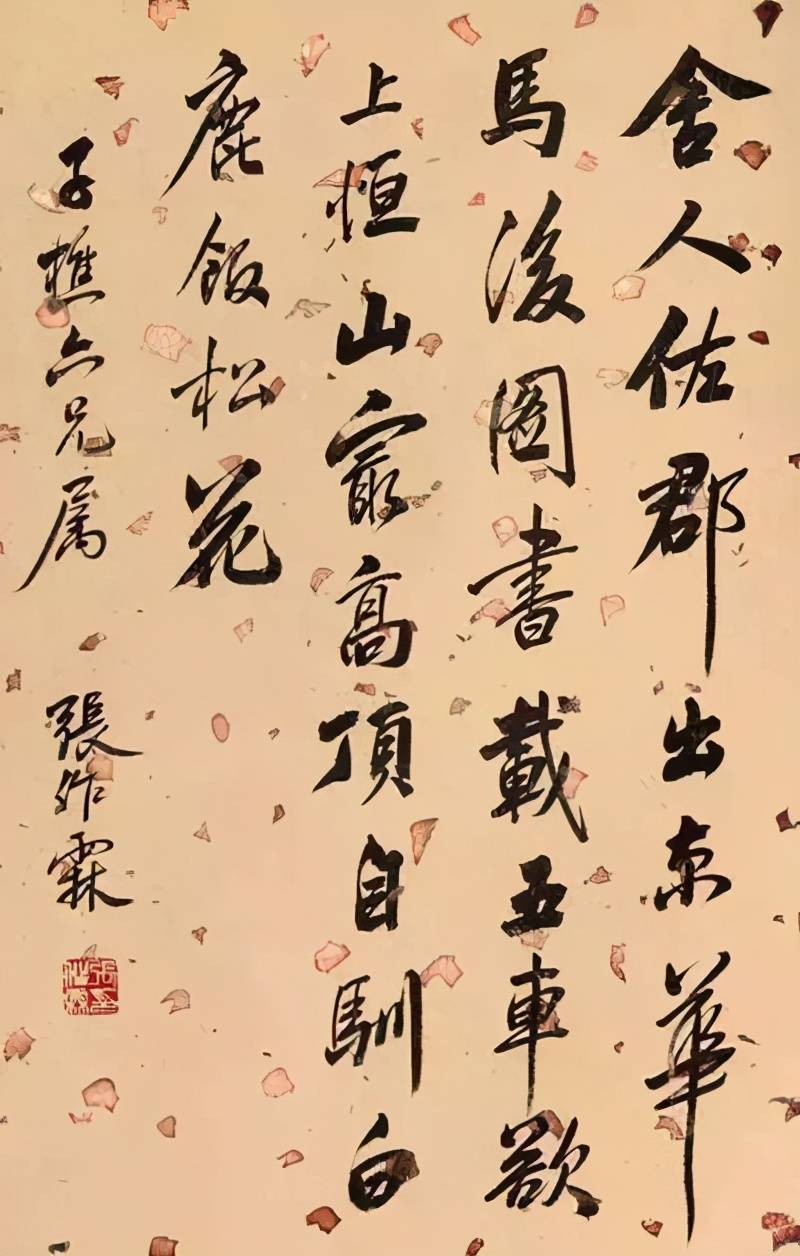 舍人佐郡出京華
馬後圖書載五車欲
上恒山寂高頂自馴白
鹿飯松花
子樵六兄属
張作霖
張作霖印